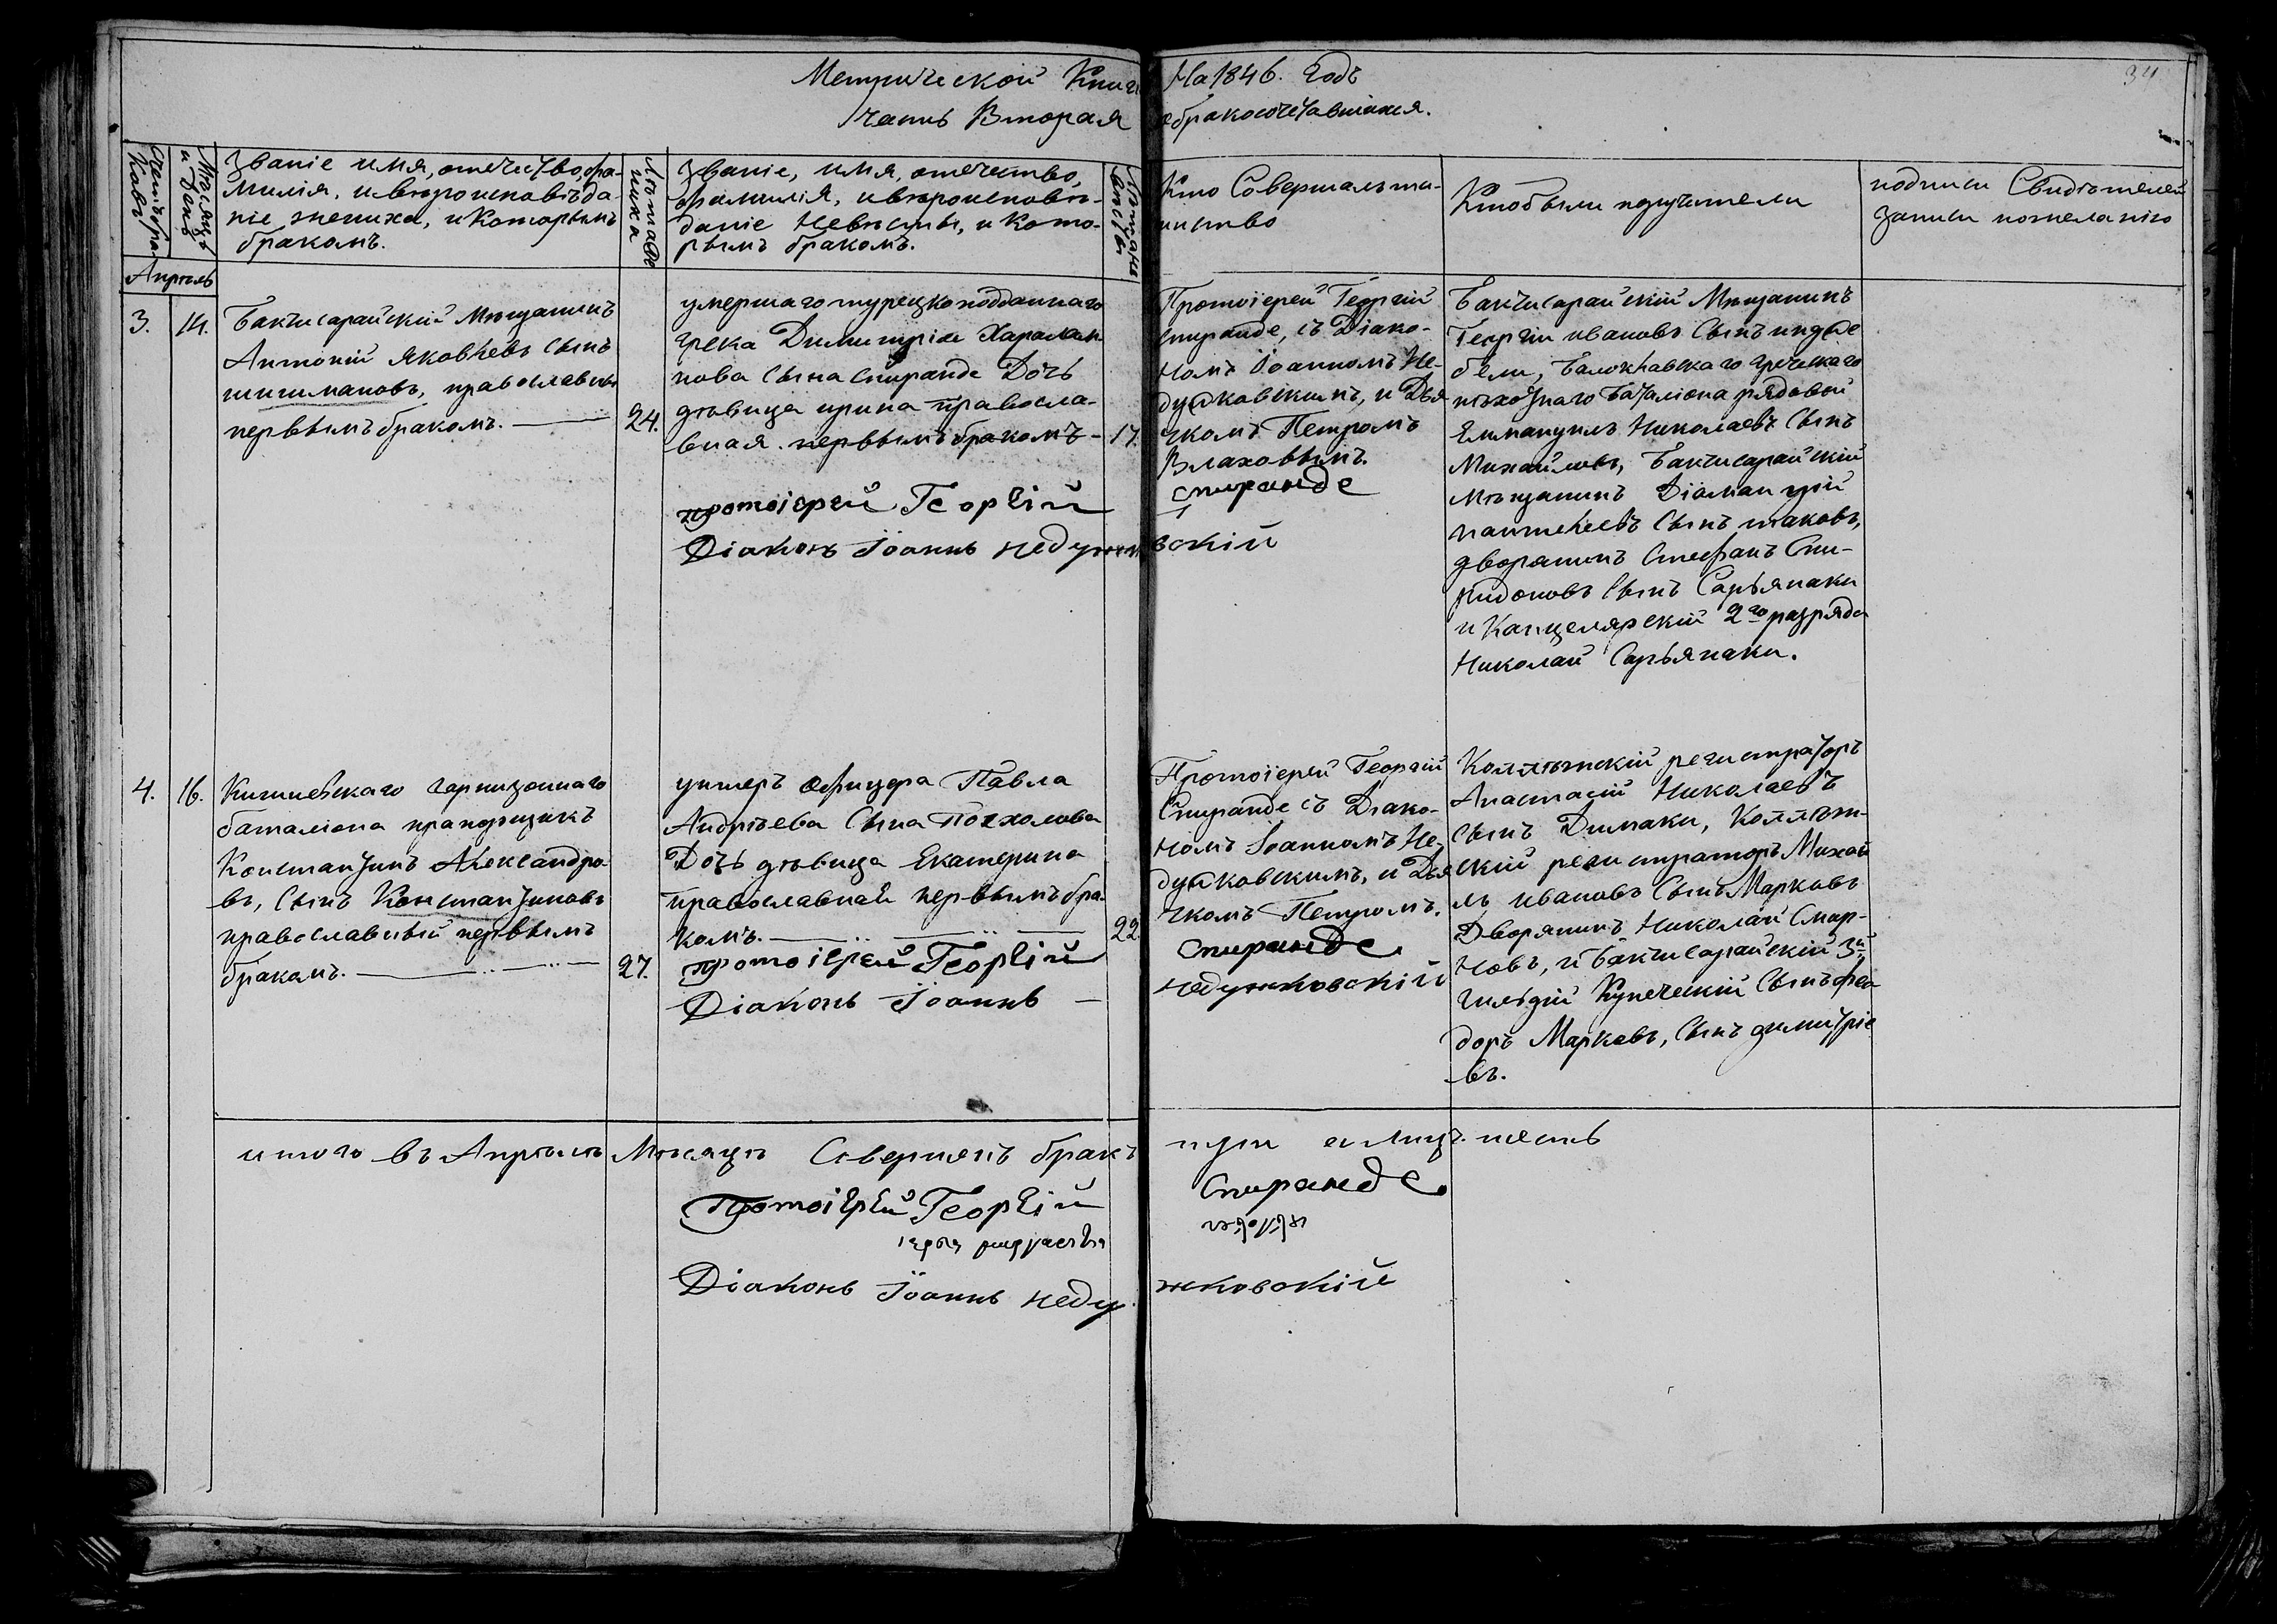 Метрической Книги На 1846. Годъ
часть Вторая о бракосочетавшихся.
34
Счетъ браковъ
Мѣсяцъ и День
Званіе имя, отечество, фа-
милія, и вѣроисповѣда-
ніе жениха, и Которымъ
бракомъ.
Лѣта жениха
Званіе, имя, отечество,
фамилія, и вѣроисповѣ-
даніе Невѣсты, и Кото-
рымъ бракомъ.
Кто Совершалъ та-
инство
Кто были поручители
подписи Свидѣтелей
записи по желанію
Апрѣль
3.
14.
Бакчисарайскій Мѣщанинъ
Антоній Яковлевъ Сынъ
шишмановъ, православный
первымъ бракомъ.
24.
умершаго турецкоподданнаго
грека Димитрія Харалам-
пова Сына Спиранде Дочь
дѣвица ирина правосла-
вная. первымъ бракомъ-
17.
протоіерей Георгій Спиранде
Діаконъ Іоаннъ недужковскій
Протоіерей Георгій
Спиранде, съ Діако-
номъ Іоанномъ Не-
дужковскимъ, и Дья
чкомъ Петромъ
Влаховымъ.
Бакчисарайскій Мѣщанинъ
Георгій ивановъ Сынъ
бели, Балоклавскаго греческаго
пѣхотнаго Баталіона рядовой
Еммануилъ Николаевъ Сынъ
Михайловъ, Бакчисарайскій
Мѣщанинъ Діамантій
пантелеевъ Сынъ
дворянинъ Стефанъ Спи-
ридоновъ Сынъ Сарьянаки
и Канцелярскій 2го разряда
Николай Сарьянаки.
4.
16.
Кишиневскаго гарнизоннаго
баталіона прапорщикъ
Константинъ Александро-
въ, Сынъ Константиновъ
православный первымъ
бракомъ.
27.
унтеръ офицера Павла
Андрѣева Сына
Дочь дѣвица Екатерина
православная первымъ бра-
комъ.
22.
протоіерей Георгій Спиранде
Діаконъ Іоаннъ - недужковскій
Протоіерей Георгій
Спиранде съ Діако-
номъ Іоанномъ Не-
дужковскимъ, и Дья
чкомъ Петромъ.
Коллѣжскій регистраторъ
Анастасій Николаевъ
Сынъ Димаки, Коллѣж-
скій регистраторъ Михаи
лъ ивановъ Сынъ Марковъ
Дворянинъ Николай Смир-
новъ, и Бакчисарайскій 3й
гильдіи Купеческій Сынъ фео
доръ Марковъ, Сынъ димитріе
-въ.
итого въ Апрѣлѣ Мѣсяцѣ Совершенъ бракъ
Протоіерей Георгій Спиранде
Діаконъ Іоаннъ недужковскій